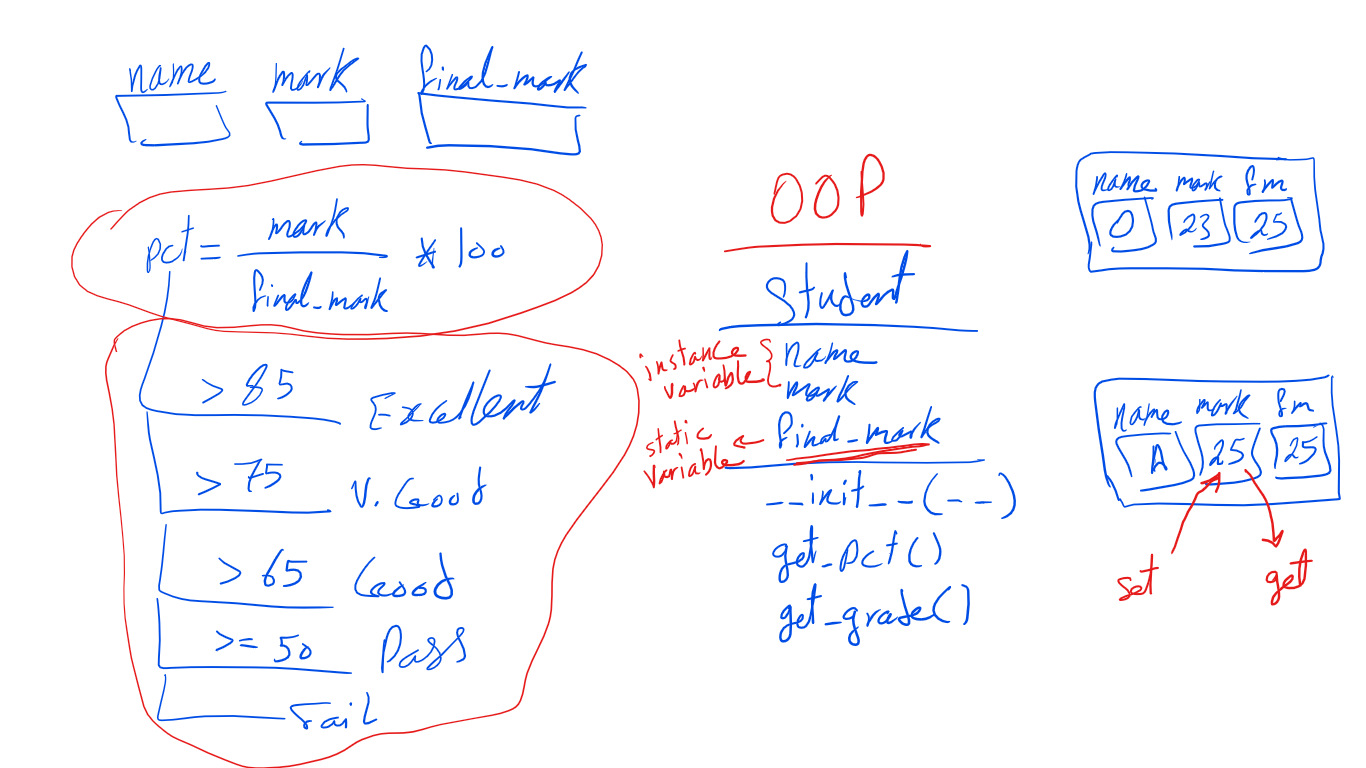 name mark final_mark
pct = mark / final_mark * 100
> 85 Excellent
> 75 V. Good
> 65 Good
>= 50 Pass
Fail
OOP
Student
instance variable
name
mark
static variable
final_mark
__init__(--)
get_pct()
get_grade()
name mark fm
O 23 25
name mark fm
A 25 25
set get